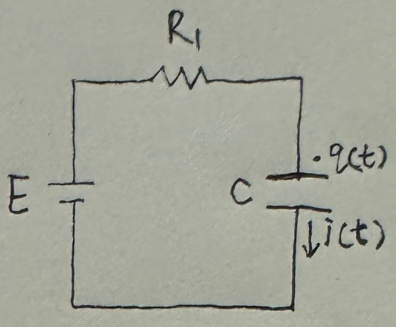 R₁
E
C
q(t)
i(t)